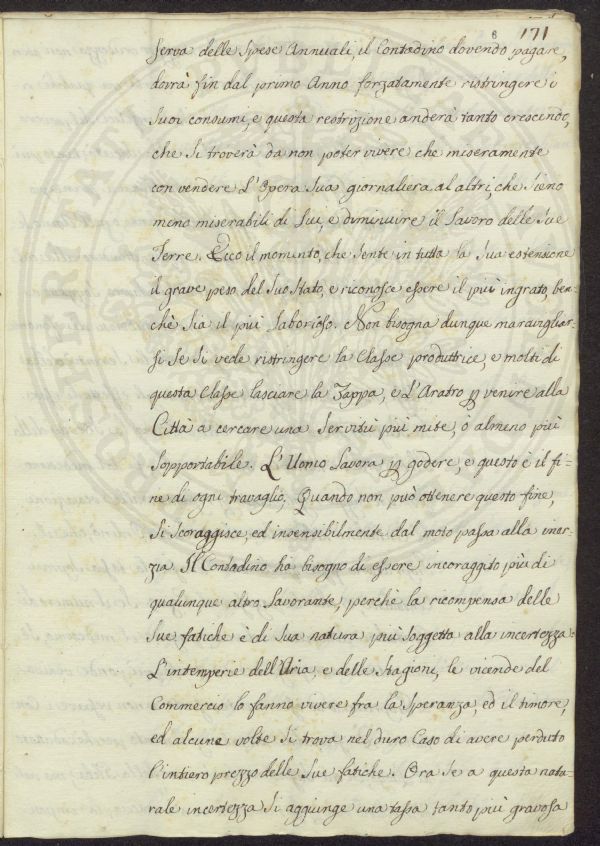 8 171
serva delle Spese Annuali, il Contadino dovendo pagare,
dovrà fin dal primo Anno forzatamente ristringere i
suoi consumi, e questa restrizione anderà tanto crescindo,
che si troverà da non poter vivere che miseramente
con vendere l'Opera sua giornaliera al altri, che sieno
meno miserabili di lui, e diminuire il lavoro delle sue
Terre. Ecco il momento, che sente in tutta la sua estensione
il grave peso del suo stato, e riconosce essere il più ingrato, ben-
chè sia il più laborioso. Non bisogna dunque maravigliar-
si se si vede ristringere la Classe produttrice, e molti di
questa Classe lasciare la Zappa, e l'Aratro p venire alla
Città a cercare una servitù più mite, o almeno più
sopportabile. L'Uomo lavora p godere, e questo è il fi-
ne di ogni travaglio, Quando non può ottenere questo fine,
si scoraggisce, ed insensibilmente dal moto passa alla iner-
zia. Il Contadino ha bisogno di essere incoraggito più di
qualunque altro lavorante, perchè la ricompensa delle
sue fatiche è di sua natura più soggetta alla incertezza:
L'intemperie dell'Aria, e delle Stagioni, le vicende del
Commercio lo fanno vivere fra la speranza, ed il timore,
ed alcune volte si trova nel duro Caso di avere perduto
l'intiero prezzo delle sue fatiche. Ora se a questa natu-
rale incertezza si aggiunge una tassa tanto più gravosa